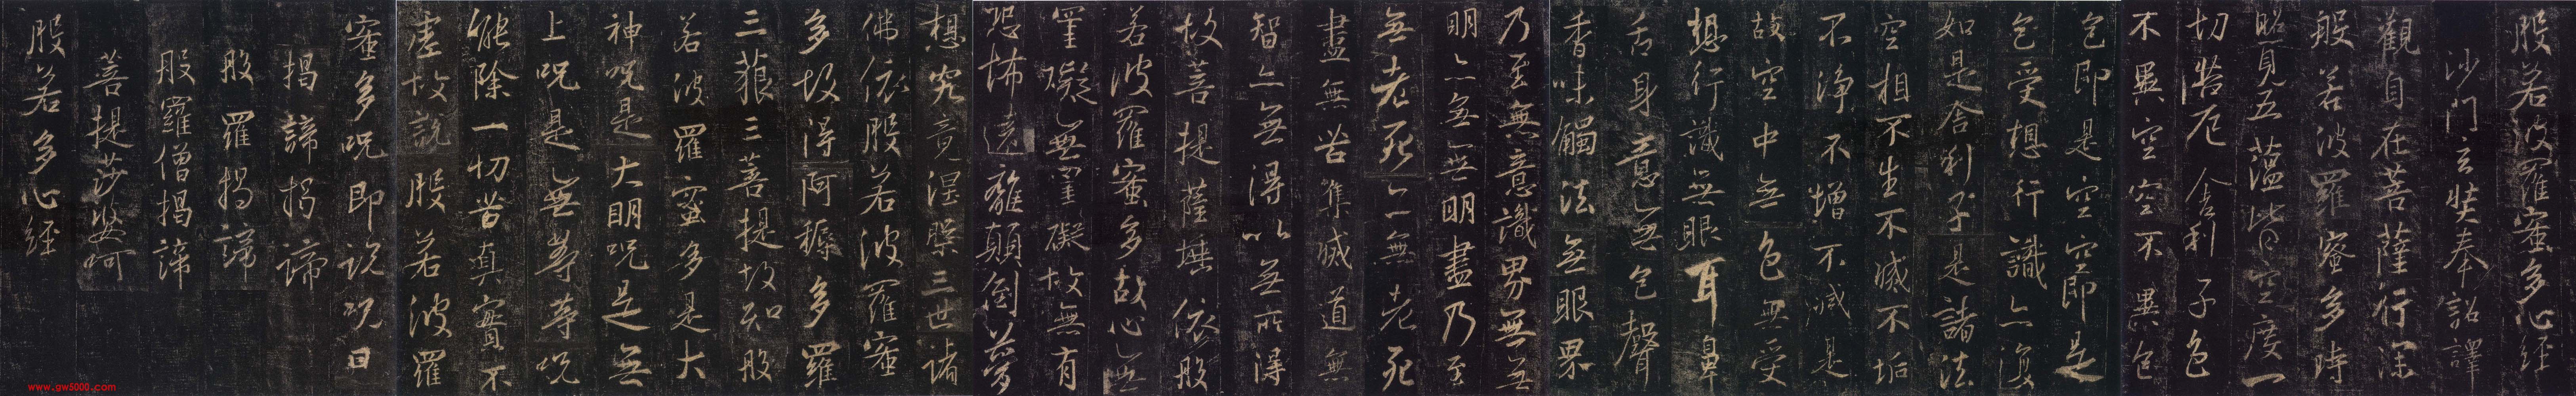 般若波羅蜜多心經
沙門玄奘奉詔譯
觀自在菩薩行深
般若波羅蜜多時
照見五蘊皆空度一
切苦厄舍利子色
不異空空不異色
色即是空空即是
色受想行識亦復
如是舍利子是諸法
空相不生不滅不垢
不淨不增不減是
故空中無色無受
想行識無眼耳鼻
舌身意無色聲
香味觸法無眼界
乃至無意識界無無
明亦無無明盡乃至
無老死亦無老死
盡無苦集滅道無
智亦無得以無所得
故菩提薩埵依般
若波羅蜜多故心無
罣礙無罣礙故無有
恐怖遠離顛倒夢
想究竟涅槃三世諸
佛依般若波羅蜜
多故得阿耨多羅
三藐三菩提故知般
若波羅蜜多是大
神咒是大明咒是無
上咒是無等等咒
能除一切苦真實不
虛故說般若波羅
蜜多咒即說咒曰
揭諦揭諦
般羅揭諦
般羅僧揭諦
菩提莎婆呵
般若多心經
www.gw5000.com